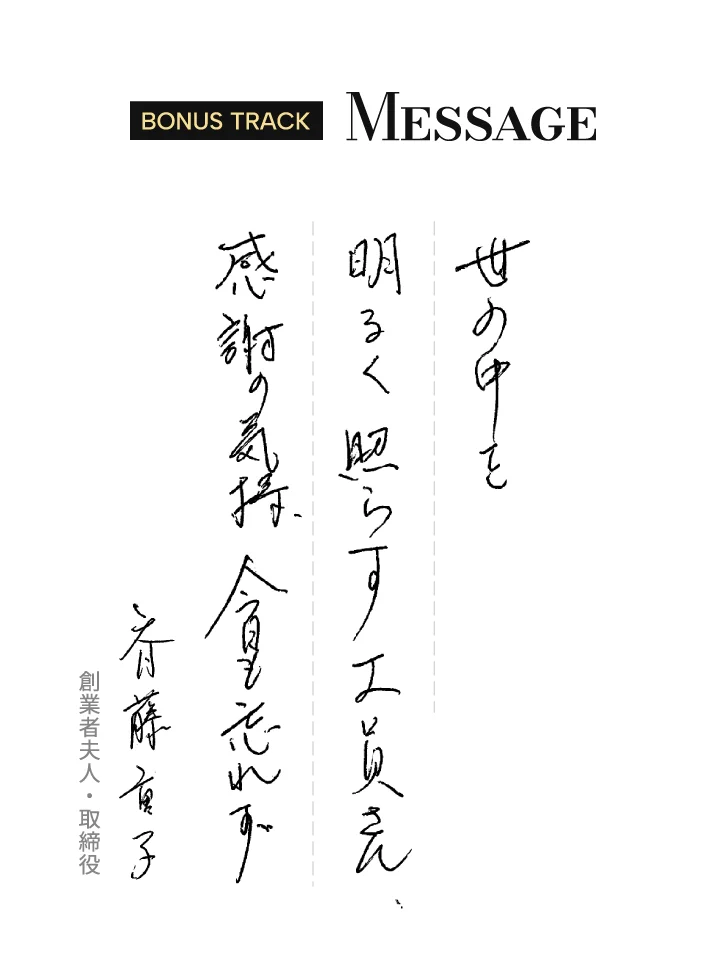 BONUS TRACK MESSAGE
世の中を
明るく照らす工員さん、
感謝の気持、今日も忘れず
斉藤 子
創業者夫人・取締役